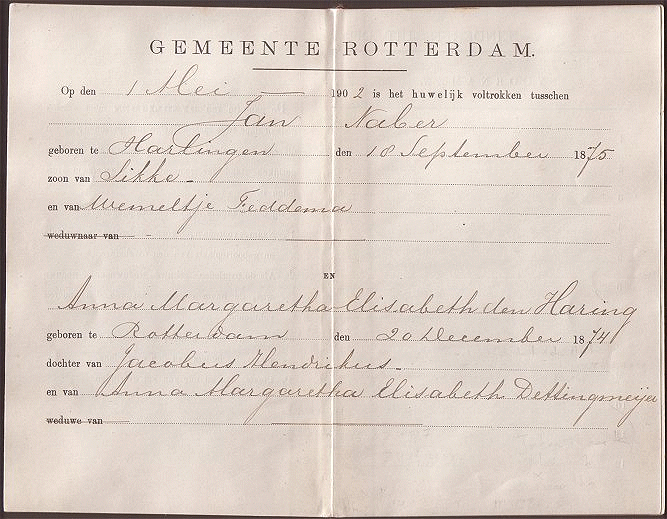 GEMEENTE ROTTERDAM.
Op den 1 Mei 1902 is het huwelijk voltrokken tusschen
Jan Naber
geboren te Harlingen den 18 September 1875
zoon van Sikke
en van Wemeltje Feddema
weduwnaar van
EN
Anna Margaretha Elisabeth den Haring
geboren te Rotterdam den 20 December 1874
dochter van Jacobus Hendrikus
en van Anna Margaretha Elisabeth Dettingmeijer
weduwe van